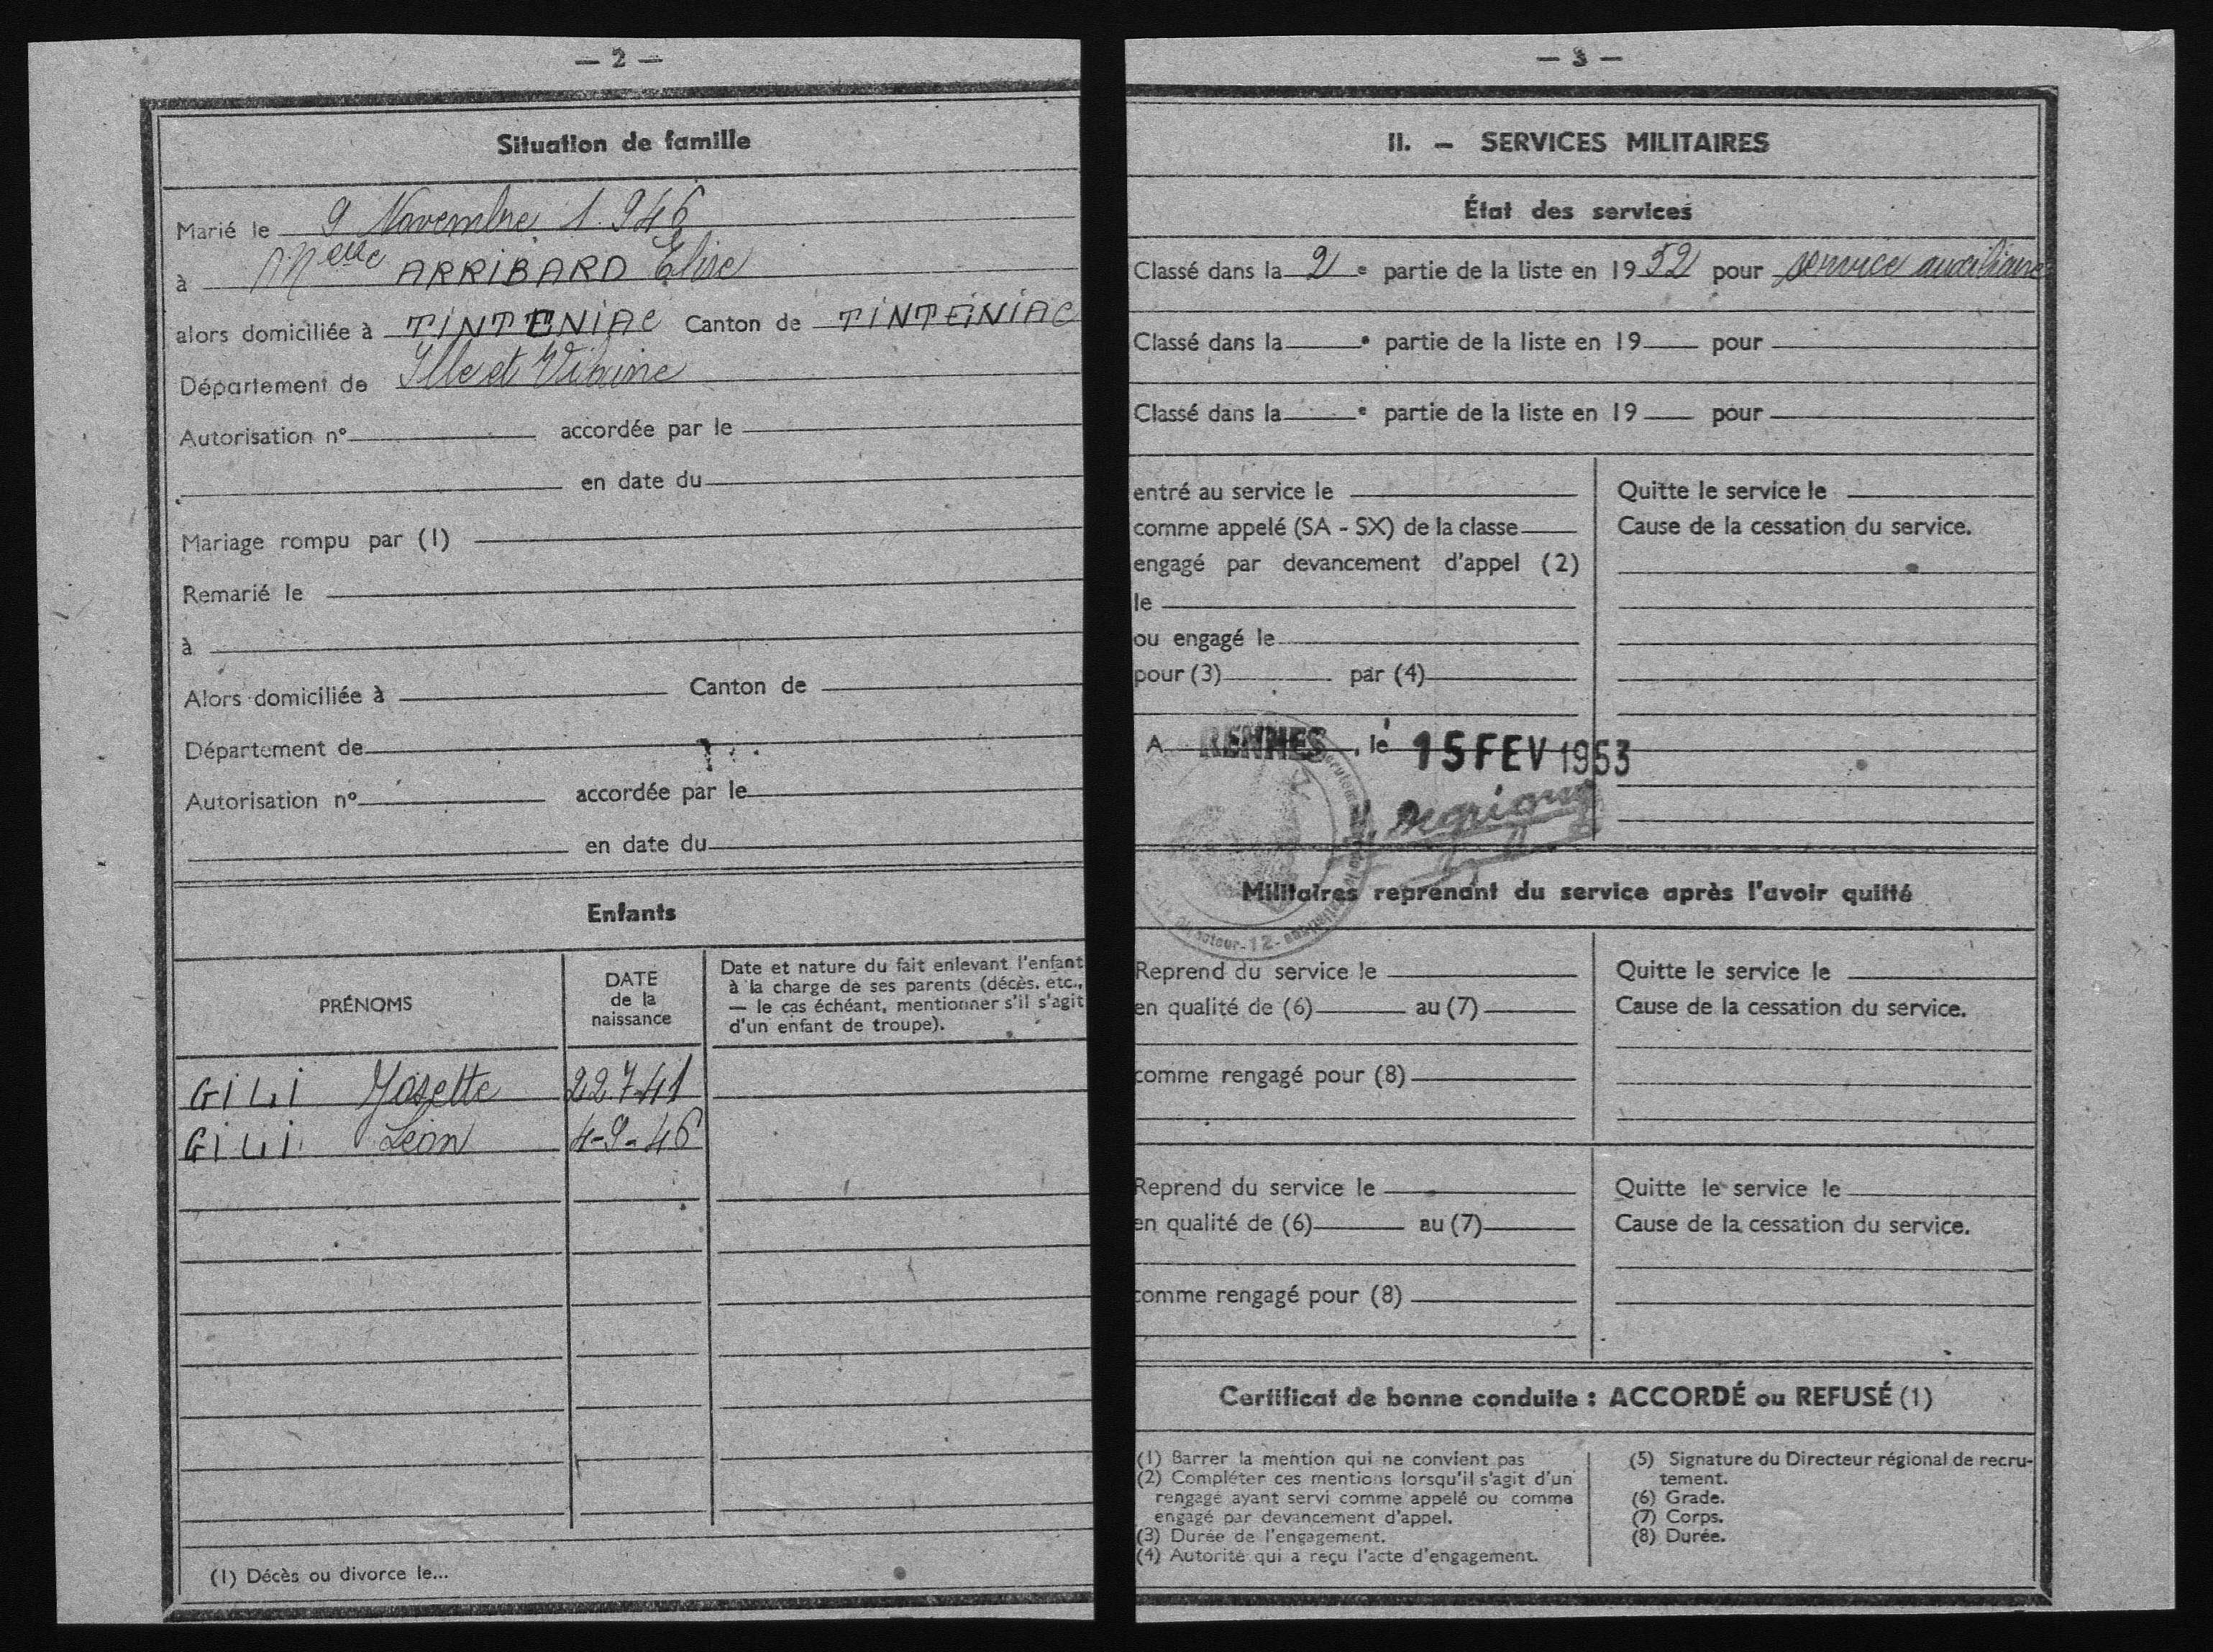 — 2 —
Situation de famille
Marié le 9 Novembre 1.946
à Melle ARRIBARD Elise
alors domiciliée à TINTENIAC Canton de TINTEINIAC
Département de Ille et Vilaine
Autorisation n° accordée par le
en date du
Mariage rompu par (1)
Remarié le
à
Alors domiciliée à Canton de
Département de
Autorisation n° accordée par le
en date du
Enfants
PRÉNOMS
DATE
de la
naissance
Date et nature du fait enlevant l'enfant
à la charge de ses parents (décès, etc.,
— le cas échéant, mentionner s'il s'agit
d'un enfant de troupe).
GILI Josette 22.7.41
GILI Léon 4-9-46
(1) Décès ou divorce le...
— 3 —
II. — SERVICES MILITAIRES
État des services
Classé dans la 2 e partie de la liste en 1952 pour service auxiliaire
Classé dans la e partie de la liste en 19 pour
Classé dans la e partie de la liste en 19 pour
entré au service le
comme appelé (SA - SX) de la classe
engagé par devancement d'appel (2)
le
ou engagé le
pour (3) par (4)
A RENNES, le 15 FEV 1953
Quitte le service le
Cause de la cessation du service.
Militaires reprenant du service après l'avoir quitté
Reprend du service le
en qualité de (6) au (7)
comme rengagé pour (8)
Quitte le service le
Cause de la cessation du service.
Reprend du service le
en qualité de (6) au (7)
comme rengagé pour (8)
Quitte le service le
Cause de la cessation du service.
Certificat de bonne conduite : ACCORDÉ ou REFUSÉ (1)
(1) Barrer la mention qui ne convient pas
(2) Compléter ces mentions lorsqu'il s'agit d'un
rengagé ayant servi comme appelé ou comme
engagé par devancement d'appel.
(3) Durée de l'engagement.
(4) Autorité qui a reçu l'acte d'engagement.
(5) Signature du Directeur régional de recru-
tement.
(6) Grade.
(7) Corps.
(8) Durée.